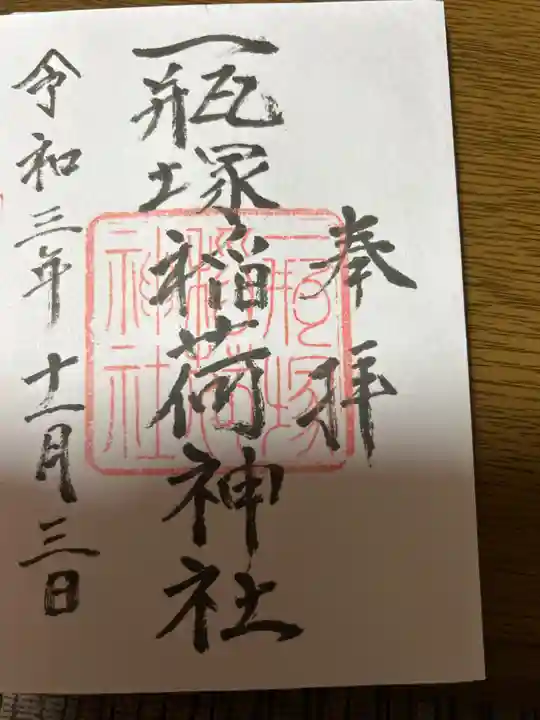 奉拝
一瓶塚稲荷神社
令和三年十一月三日
一瓶塚
稲荷
神社